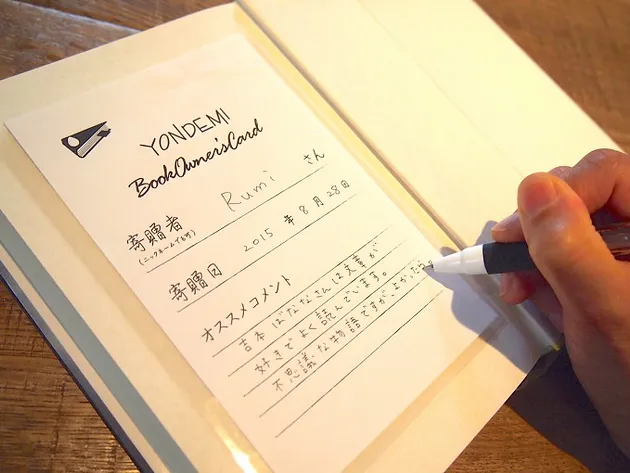 YONDEMI
BookOwner'sCard
寄贈者 Rumi さん
(ニックネームでも可)
寄贈日 2015 年 8 月 28 日
オススメコメント
吉本ばななさんは文章が
好きでよく読んでいます。
不思議な物語ですが、よかったら。